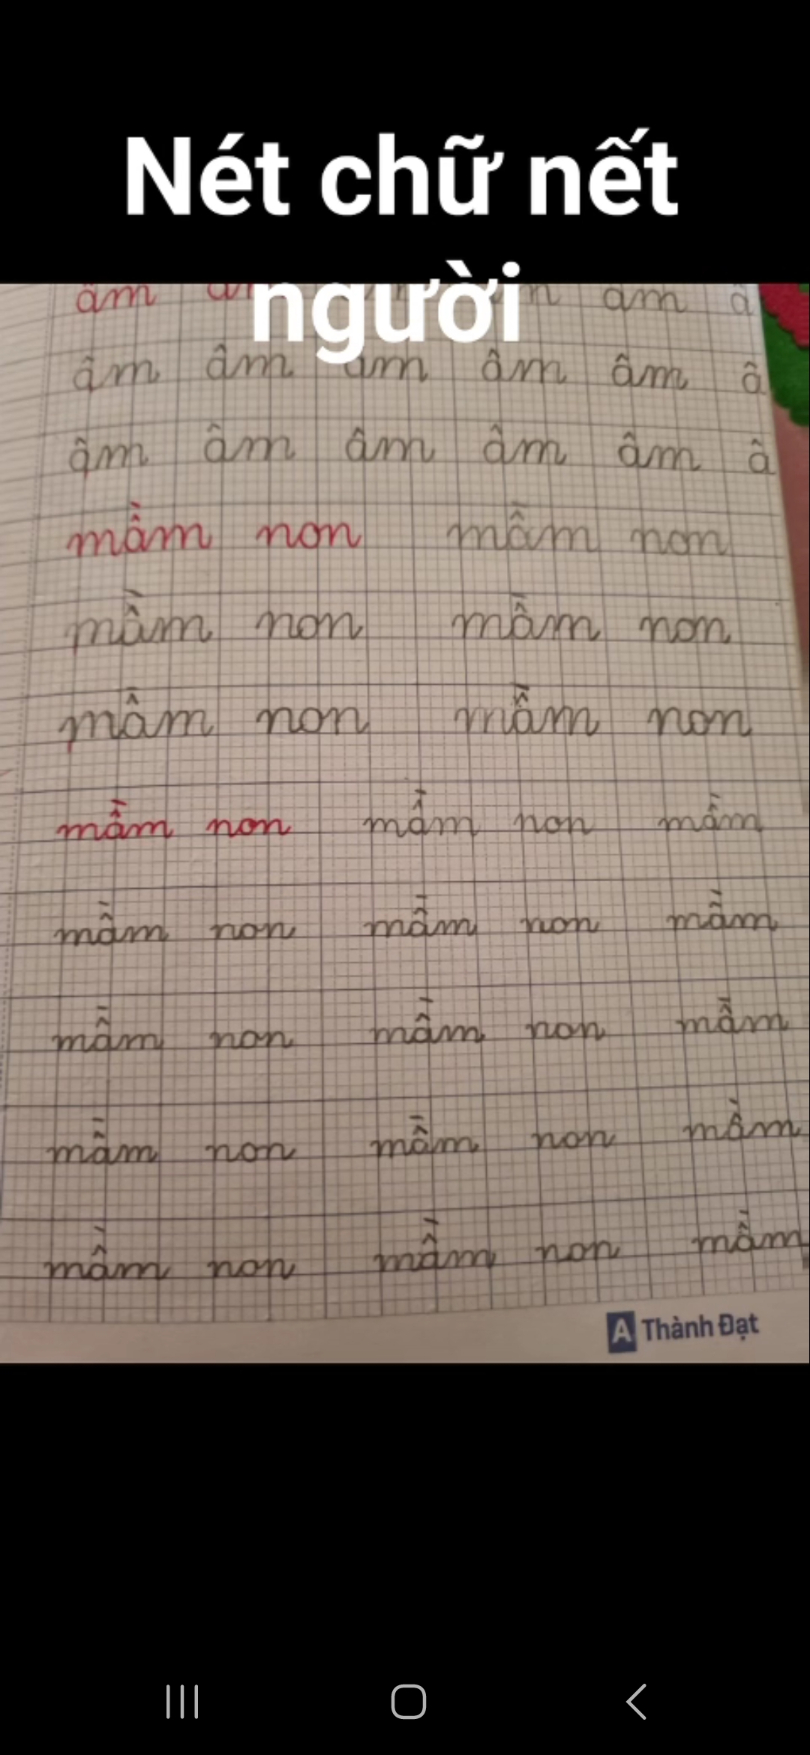 Nét chữ nết
người
âm âm âm â
âm âm âm âm âm â
âm âm âm âm âm â
mầm non mầm non
mầm non mầm non
mâm non mầm non
mầm non mầm non mầm
mầm non mầm non mầm
mầm non mầm non mầm
mầm non mầm non mầm
mầm non mầm non mầm
A Thành Đạt